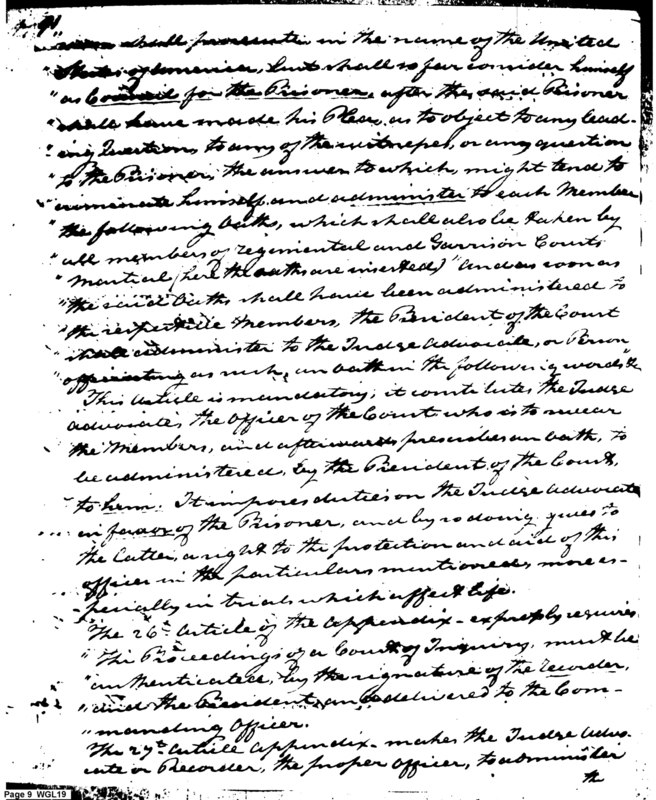 shall prosecute in the name of the United
States of America, but shall so far consider himself
"as Council for the Prisoner, after the said Prisoner
"shall have made his Plea, as to object to any lead-
"ing Questions, to any of the witnesses, or any question
"to the Prisoner, the answer to which, might tend to
"criminate himself, and administer to each Member
"the following oaths, which shall also be taken by
"all members of regimental and Garrison Courts
"Martial (here the oaths are inserted) "and as soon as
"the said Oaths shall have been administered to
"the respective Members, the President of the Court
"shall administer to the Judge Advocate, or Person
officiating as such, an oath in the following words" &c
This Article is mandatory; it constitutes the Judge
advocate, the Officer of the Court who is to swear
the Members, and afterwards prescribes an oath, to
be administered, by the President, of the Court,
to him. It imposes duties on the Judge Advocate
in favor of the Prisoner, and by so doing gives to
the latter, a right to the protection and aid of this
officer in the particulars mentioned, more es-
pecially in trials which affect life.
The 26th Article of the Appendix - expressly requires
"The Proceedings of a Court of Inquiry, must be
"authenticated, by the signature of the recorder,
"and the President, and delivered to the Com-
"manding Officer.
The 27th Article appendix - makes the Judge Advo-
cate or Recorder, the proper officer, to administer
th
Page 9 WGL19